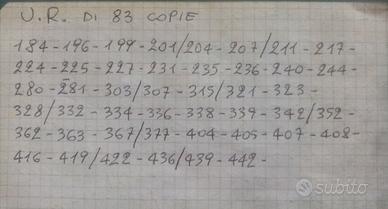 U.R. DI 83 COPIE
184-196-199-201/204-207/211-217-
224-225-227-231-235-236-240-244-
280-281-303/307-315/321-323-
328/332-334-336-338-339-342/352-
362-363-367/377-404-405-407-408-
416-419/422-436/439-442-
subito